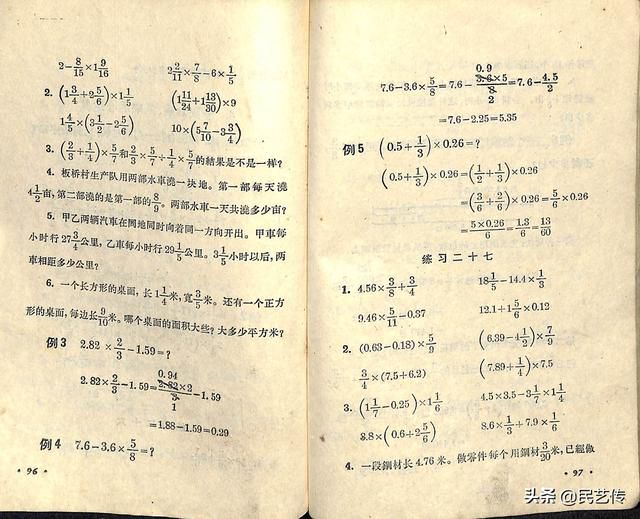 2-8/15×1 9/16    2 2/11×7/8-6×1/5
2. (1 3/4+2 5/6)×1 1/5    (1 11/24+1 13/30)×9
1 4/5×(3 1/2-2 5/6)    10×(5 7/10-3 3/4)
3. (2/3+1/4)×5/7和2/3×5/7+1/4×5/7的结果是不是一样?
4. 板桥村生产队用两部水車澆一块地。第一部每天澆
4 1/2亩,第二部澆的是第一部的8/9。两部水車一天共澆多少亩?
5. 甲乙两輛汽車在同地同时向着同一方向开出。甲車每
小时行27 3/4公里,乙車每小时行29 1/5公里。3 1/5小时以后,两
車相距多少公里?
6. 一个长方形的桌面,长1 1/4米,宽3/5米。还有一个正方
形的桌面,每边长9/10米。哪个桌面的面积大些?大多少平方米?
例3 2.82×2/3-1.59=?
2.82×2/3-1.59=0.94 2.82×2/3 1-1.59
=1.88-1.59=0.29
例4 7.6-3.6×5/8=?
·96·
7.6-3.6×5/8=7.6-0.9 3.6×5/8 2=7.6-4.5/2
=7.6-2.25=5.35
例5 (0.5+1/3)×0.26=?
(0.5+1/3)×0.26=(1/2+1/3)×0.26
=(3/6+2/6)×0.26=5/6×0.26
=5×0.26/6=1.3/6=13/60
练习二十七
1. 4.56×3/8+3/4    18 1/5-14.4×1/3
9.46×5/11-0.37    12.1+1 5/6×0.12
2. (0.63-0.18)×5/9    (6.39-4 1/2)×7/9
3/4×(7.5+6.2)    (7.89+1/4)×7.5
3. (1 1/7-0.25)×1 1/6    4.5×3.5-3 1/7×1 1/4
8.8×(0.6+2 5/6)    8.6×1/3+7.9×1/6
4. 一段鋼材长4.76米。做零件每个用鋼材3/20米,已經做
·97·
头条 @民艺传